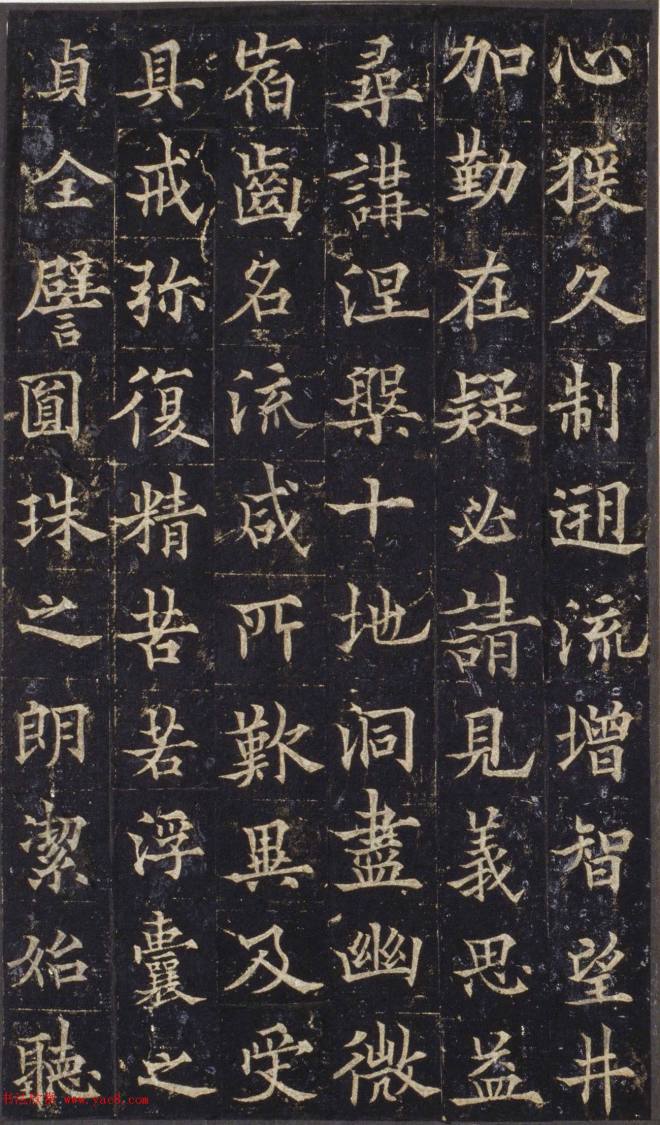 心猨久制遡流增智望井
加勤在疑必請見義思益
尋講涅槃十地洞盡幽微
宿齒名流咸所歎異及受
具戒弥復精苦若浮囊之
貞全譬圓珠之朗潔始聽
书法欣赏 www.yac8.com